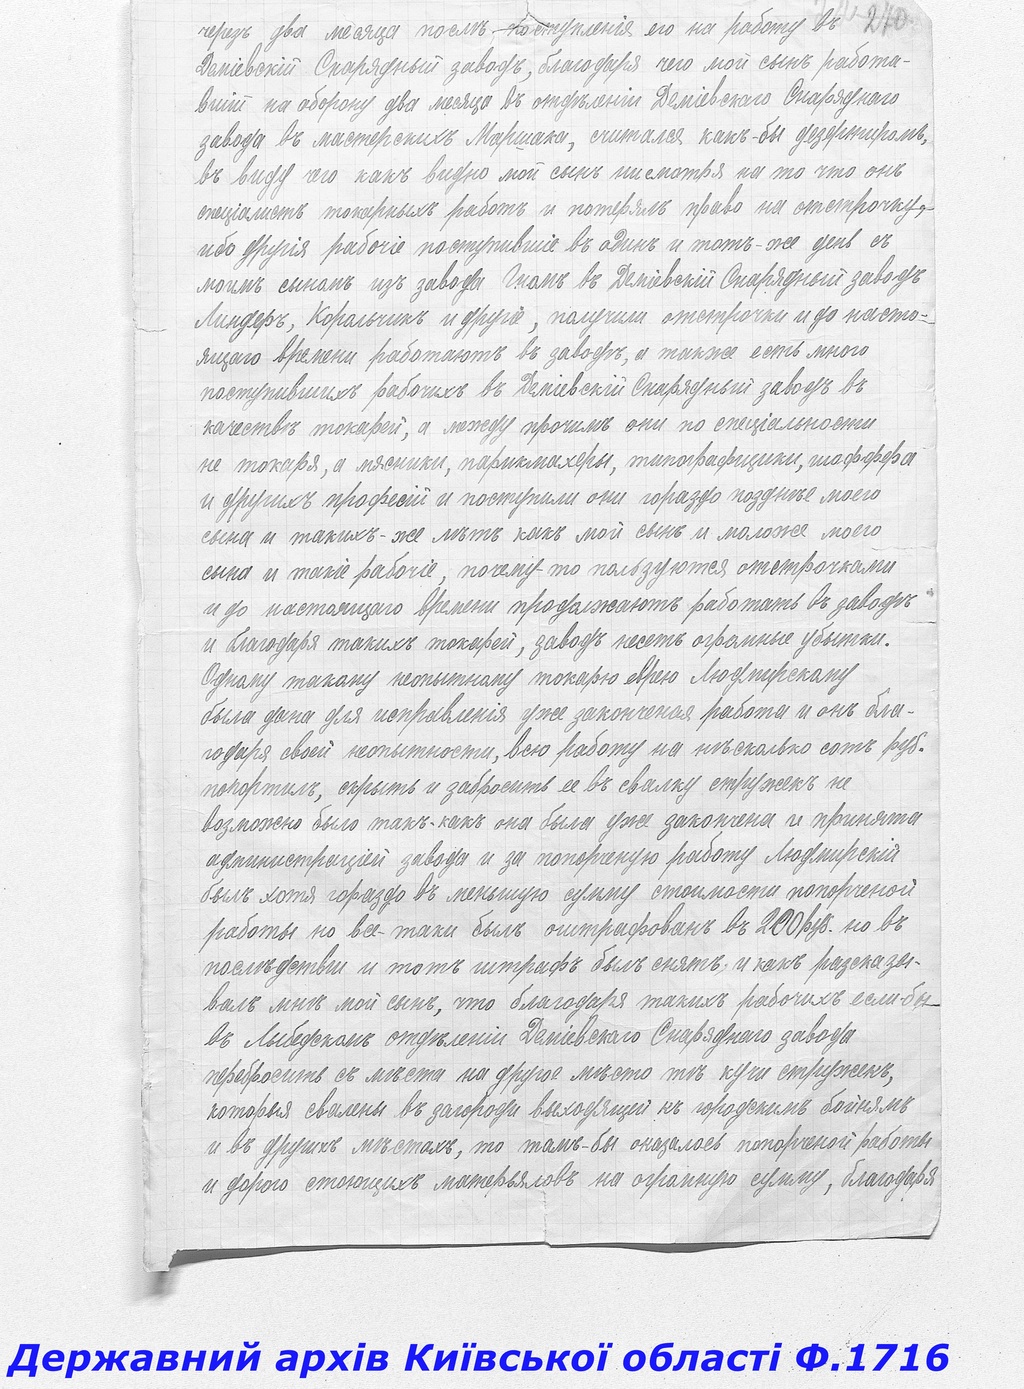 240
через два месяца послѣ поступленія его на работу въ
Деміевскій Снарядный заводъ, благодаря чего мой сынъ работа-
вшій на оборону два месяца въ отдѣленіи Деміевскаго Снаряднаго
завода въ мастерскихъ Маршака, считался какъ-бы дезертиромъ,
въ виду чего какъ видно мой сынъ несмотря на то что онъ
спеціалистъ токарныхъ работъ и потерялъ право на отсрочку,
ибо другія рабочіе поступившіе въ одинъ и тотъ-же день съ
моимъ сыномъ изъ завода въ Деміевскій Снарядный заводъ
Линдеръ, Коральчикъ и другіе, получили отсрочки и до насто-
ящаго времени работаютъ въ заводѣ, а также есть много
поступившихъ рабочихъ въ Деміевскій Снарядный заводъ въ
качествѣ токарей, а между прочимъ они по спеціальности
не токаря, а мясники, парикмахеры, типографщики, шоффера
и другихъ професій и поступили они гораздо позднѣе моего
сына и такихъ-же лѣтъ какъ мой сынъ и моложе моего
сына и такіе рабочіе, почему-то пользуются отсрочками
и до настоящаго времени продолжаютъ работать въ заводѣ
и благодаря такихъ токарей, заводъ несетъ огромные убытки.
Одному такому неопытному токарю еврею Людмирскому
была дана для исправленія уже законченая работа и онъ бла-
годаря своей неопытности, всю работу на нѣсколько сотъ руб.
попортилъ, скрыть и забросить ее въ свалку стружекъ не
возможно было такъ-какъ она была уже закончена и принята
администраціей завода и за попорченую работу Людмирскій
былъ хотя гораздо въ меньшую сумму стоимости попорченой
работы но все-таки былъ оштрафованъ въ 200 руб. но въ
послѣдствіи и тотъ штрафъ былъ снятъ, и какъ разсказы-
валъ мнѣ мой сынъ, что благодаря такихъ рабочихъ если-бы
въ Лыбедскомъ отдѣленіи Деміевскаго Снаряднаго завода
перебросить съ мѣста на другое мѣсто тѣ кучи стружекъ,
которыя свалены въ загороди выходящей къ городскимъ бойнямъ
и въ другихъ мѣстахъ, то тамъ-бы оказалось попорченой работы
и дорого стоющихъ матерьяловъ на огромную сумму, благодаря
Державний архів Київської області Ф.1716